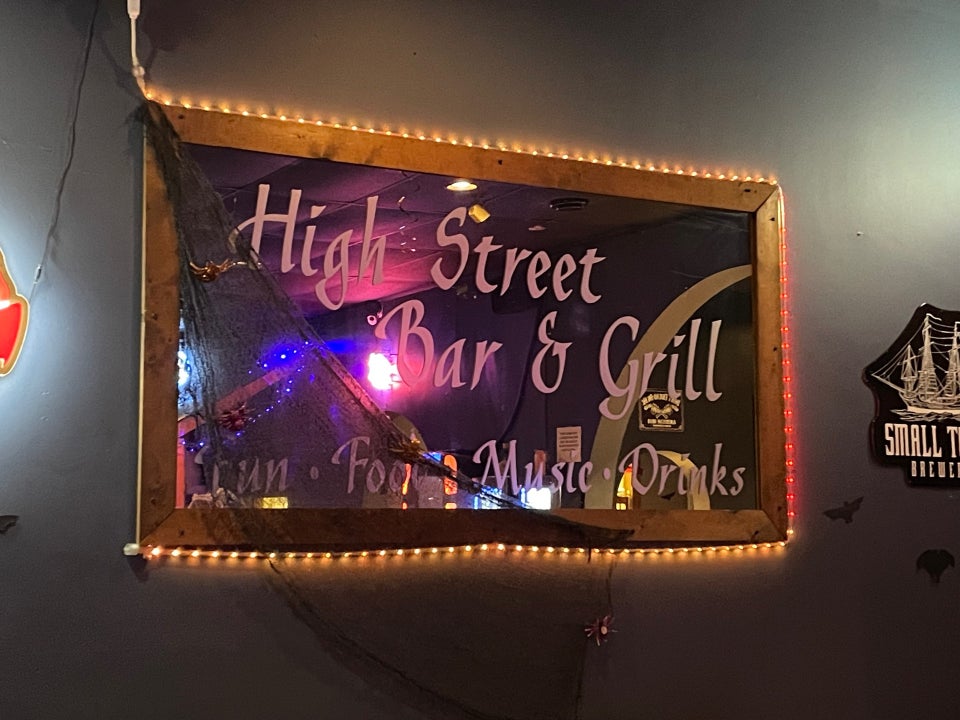 High Street
Bar & Grill
Fun · Food · Music · Drinks
SMALL T
BREWE